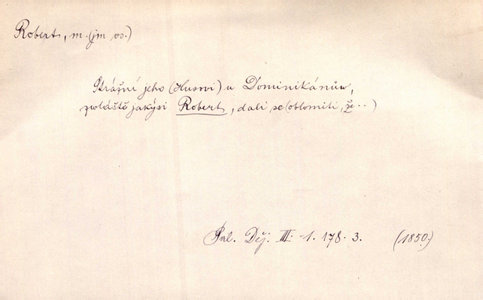 Robert, m. (jm. os.)
Strážní jeho (Husovi) u Dominikánův,
zvláště jakýsi Robert, dali se oblomiti, že..)
Pal. Děj. III. 1. 178. 3. (1850.)